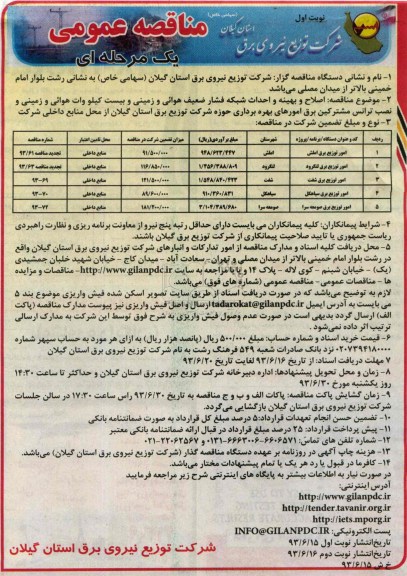 نوبت اول
(سهامی خاص)
استان گیلان
شرکت توزیع نیروی برق
مناقصه عمومی
یک مرحله ای
۱- نام و نشانی دستگاه مناقصه گزار: شرکت توزیع نیروی برق استان گیلان (سهامی خاص) به نشانی رشت بلوار امام
خمینی بالاتر از میدان مصلی می‌باشد
۲- موضوع مناقصه: اصلاح و بهینه و احداث شبکه فشار ضعیف هوائی و زمینی و بیست کیلو وات هوائی و زمینی و
نصب ترانس مشترکین برق امورهای بهره برداری حوزه شرکت توزیع برق استان گیلان از محل منابع داخلی شرکت
۳- نوع و مبلغ تضمین شرکت در مناقصه:
ردیف کد و عنوان دستگاه / برنامه / پروژه شهرستان مبلغ برآوردی(ریال) میزان تضمین شرکت در مناقصه محل تامین اعتبار شماره مناقصه
۱ امور توزیع برق املش املش ۹۴۸/۶۲۳/۴۴۷ ۹۱/۵۰۰/۰۰۰ منابع داخلی تجدید مناقصه ۹۳/۶۱
۲ امور توزیع برق لنگرود لنگرود ۱/۴۵۶/۳۸۸/۸۰۹ ۱۱۶/۸۵۰/۰۰۰ منابع داخلی تجدید مناقصه ۹۳/۶۳
۳ امور توزیع برق شفت شفت ۱۴۱/۵۰۰/۰۰۰ منابع داخلی ۹۳-۶۹
۴ امور توزیع برق سیاهکل سیاهکل ۹۱۰/۳۶۰/۸۳۱ ۸۹/۶۰۰/۰۰۰ منابع داخلی ۹۳-۷۰
۵ امور توزیع برق صومعه سرا صومعه سرا ۳/۱۰۴/۳۸۹/۶۸۰ ۱۸۱/۴۰۰/۰۰۰ منابع داخلی ۹۳-۷۲
۴- شرایط پیمانکاران: کلیه پیمانکاران می بایست دارای حداقل رتبه پنج نیرو از معاونت برنامه ریزی و نظارت راهبردی
ریاست جمهوری یا تایید صلاحیت پیمانکاری از شرکت توزیع برق گیلان باشند.
۵- محل دریافت کلیه اسناد و مدارک مناقصه از امور تدارکات و انبارهای شرکت توزیع نیروی برق استان گیلان واقع
در رشت بلوار امام خمینی بالاتر از میدان مصلی و تهران- سعادت آباد - میدان کاج - خیابان شهید خلبان جمشیدی
(یک) - خیابان شبنم - کوی لاله - پلاک ۱۴ و یا با مراجعه به سایت http://www.gilanpdc.ir- مناقصات و مزایده
ها - مناقصات عمومی - مناقصه عمومی (شماره های فوق) می‌باشد.
لازم به توضیح می‌باشد که در صورت دریافت اسناد از طریق سایت تصویر اسکن شده فیش واریزی موضوع بند ۵
می بایست به آدرس ایمیل tadarokat@gilanpdc.ir ارسال و اصل فیش واریزی نیز پیوست مدارک مناقصه (پاکت
الف) ارسال گردد بدیهی است در صورت عدم وصول فیش واریزی به شرح فوق توسط این شرکت به مدارک ارسالی
ترتیب اثر داده نمی‌شود.
۶- قیمت خرید اسناد و شماره حساب: مبلغ ۵۰۰/۰۰۰ ریال (پانصد هزار ریال) به ازای هر مورد به حساب سپهر شماره
۰۲۰۷۳۹۴۱۸۰۰۰۰ نزد بانک صادرات شعبه ۵۴۹ فرهنگ رشت به نام شرکت توزیع نیروی برق استان گیلان
۷ مهلت دریافت اسناد: از تاریخ ۹۳/۶/۱۶ لغایت تاریخ ۹۳/۶/۲۰
۸- زمان و محل تحویل پیشنهادها: اداره دبیرخانه شرکت توزیع نیروی برق استان گیلان و حداکثر تا ساعت ۱۴:۳۰
روز یکشنبه مورخ ۹۳/۶/۳۰
۹- زمان گشایش پاکت مناقصه: پاکات الف و ب و ج مناقصه به تاریخ ۹۳/۶/۳۰ راس ساعت ۱۷:۳۰ در سالن جلسات
شرکت توزیع نیروی برق استان گیلان بازگشایی می‌گردد.
۱۰- تضمین حسن انجام تعهدات قرارداد:۵ درصد مبلغ کل قرارداد به صورت ضمانتنامه بانکی
۱۱- پیش پرداخت قرارداد: ۲۵ درصد مبلغ قرارداد در قبال ارائه ضمانتنامه بانکی معتبر
۱۲- شماره تلفن های تماس: ۶۶۰۶۵۷۱-۶۶۶۳۰۰۶-۰۱۳۱ و ۲۲۰۶۲۵۶۷-۰۲۱
۱۳- هزینه چاپ آگهی در روزنامه بر عهده دستگاه مناقصه گذار (شرکت توزیع نیروی برق استان گیلان) می‌باشد.
۱۴- کارفرما در قبول یا رد هر یک یا تمام پیشنهادات مختار می‌باشد.
در صورت نیاز به اطلاعات بیشتر به پایگاه های اینترنتی شرح زیر مراجعه فرمایید
آدرس اینترنتی:
http://www.gilanpdc.ir
http://tender.tavanir.org.ir
http://iets.mporg.ir
پست الکترونیکی: INFO@GILANPDC.IR
تاریخ‌انتشار نوبت اول ۹۳/۶/۱۵
تاریخ‌انتشار نوبت دوم ۹۳/۶/۱۶
۹۳/۶/۱۵
شرکت توزیع نیروی برق استان گیلان